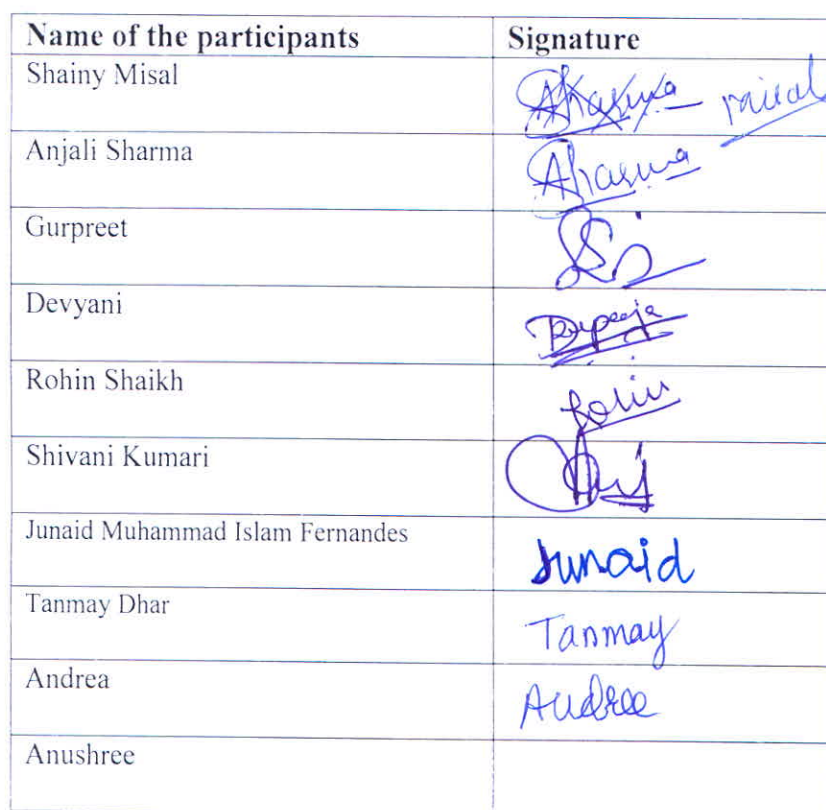 Name of the participants Signature
Shainy Misal Asharma misal
Anjali Sharma Asharma
Gurpreet
Devyani
Rohin Shaikh Rohin
Shivani Kumari
Junaid Muhammad Islam Fernandes Junaid
Tanmay Dhar Tanmay
Andrea Andree
Anushree